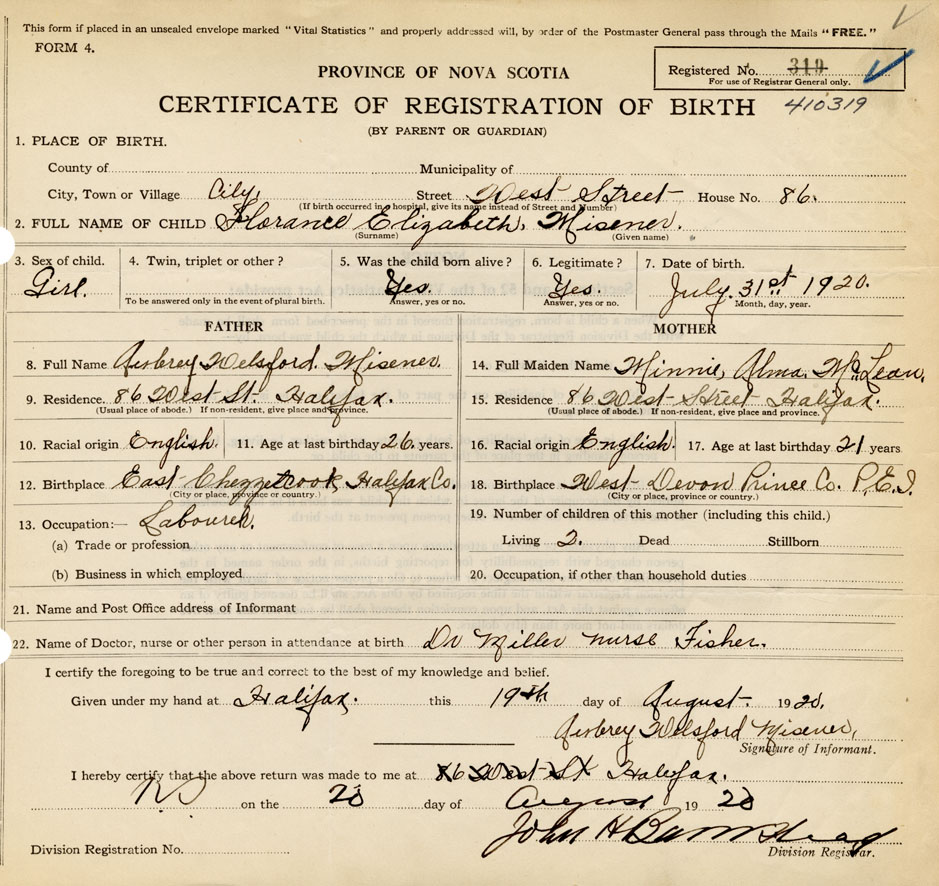 This form if placed in an unsealed envelope marked "Vital Statistics" and properly addressed will, by order of the Postmaster General pass through the Mails "FREE."
FORM 4.
PROVINCE OF NOVA SCOTIA
Registered No. 319
For use of Registrar General only.
CERTIFICATE OF REGISTRATION OF BIRTH 410319
(BY PARENT OR GUARDIAN)
1. PLACE OF BIRTH.
County of Municipality of
City, Town or Village City, Street West Street House No. 86.
(If birth occurred in hospital, give its name instead of Street and Number)
2. FULL NAME OF CHILD Florance Elizabeth, Misener.
(Surname) (Given name)
3. Sex of child. 4. Twin, triplet or other ? 5. Was the child born alive ? 6. Legitimate ? 7. Date of birth.
Girl. Yes. Yes. July. 31st 1920.
To be answered only in the event of plural birth. Answer, yes or no. Answer, yes or no. Month, day, year.
FATHER MOTHER
8. Full Name Aubrey Welsford. Misener. 14. Full Maiden Name Minnie, Alma. McLean.
9. Residence. 86 West St. Halifax. 15. Residence 86 West Street Halifax.
(Usual place of abode.) If non-resident, give place and province. (Usual place of abode.) If non-resident, give place and province.
10. Racial origin English. 11. Age at last birthday 26. years. 16. Racial origin English. 17. Age at last birthday 21 years
12. Birthplace East Chezzetcook, Halifax Co. 18. Birthplace West Devon Prince Co. P.E.I.
(City or place, province or country.) (City or place, province or country.)
13. Occupation:— Labourer. 19. Number of children of this mother (including this child.)
(a) Trade or profession Living 2. Dead Stillborn
(b) Business in which employed 20. Occupation, if other than household duties
21. Name and Post Office address of Informant
22. Name of Doctor, nurse or other person in attendance at birth Dr Miller nurse Fisher.
I certify the foregoing to be true and correct to the best of my knowledge and belief.
Given under my hand at Halifax. this 19th day of August. 1920.
Aubrey Welsford Misener,
Signature of Informant.
I hereby certify that the above return was made to me at 86 West St Halifax.
NS on the 20 day of August 1920
John H Barnstead
Division Registrar.
Division Registration No.